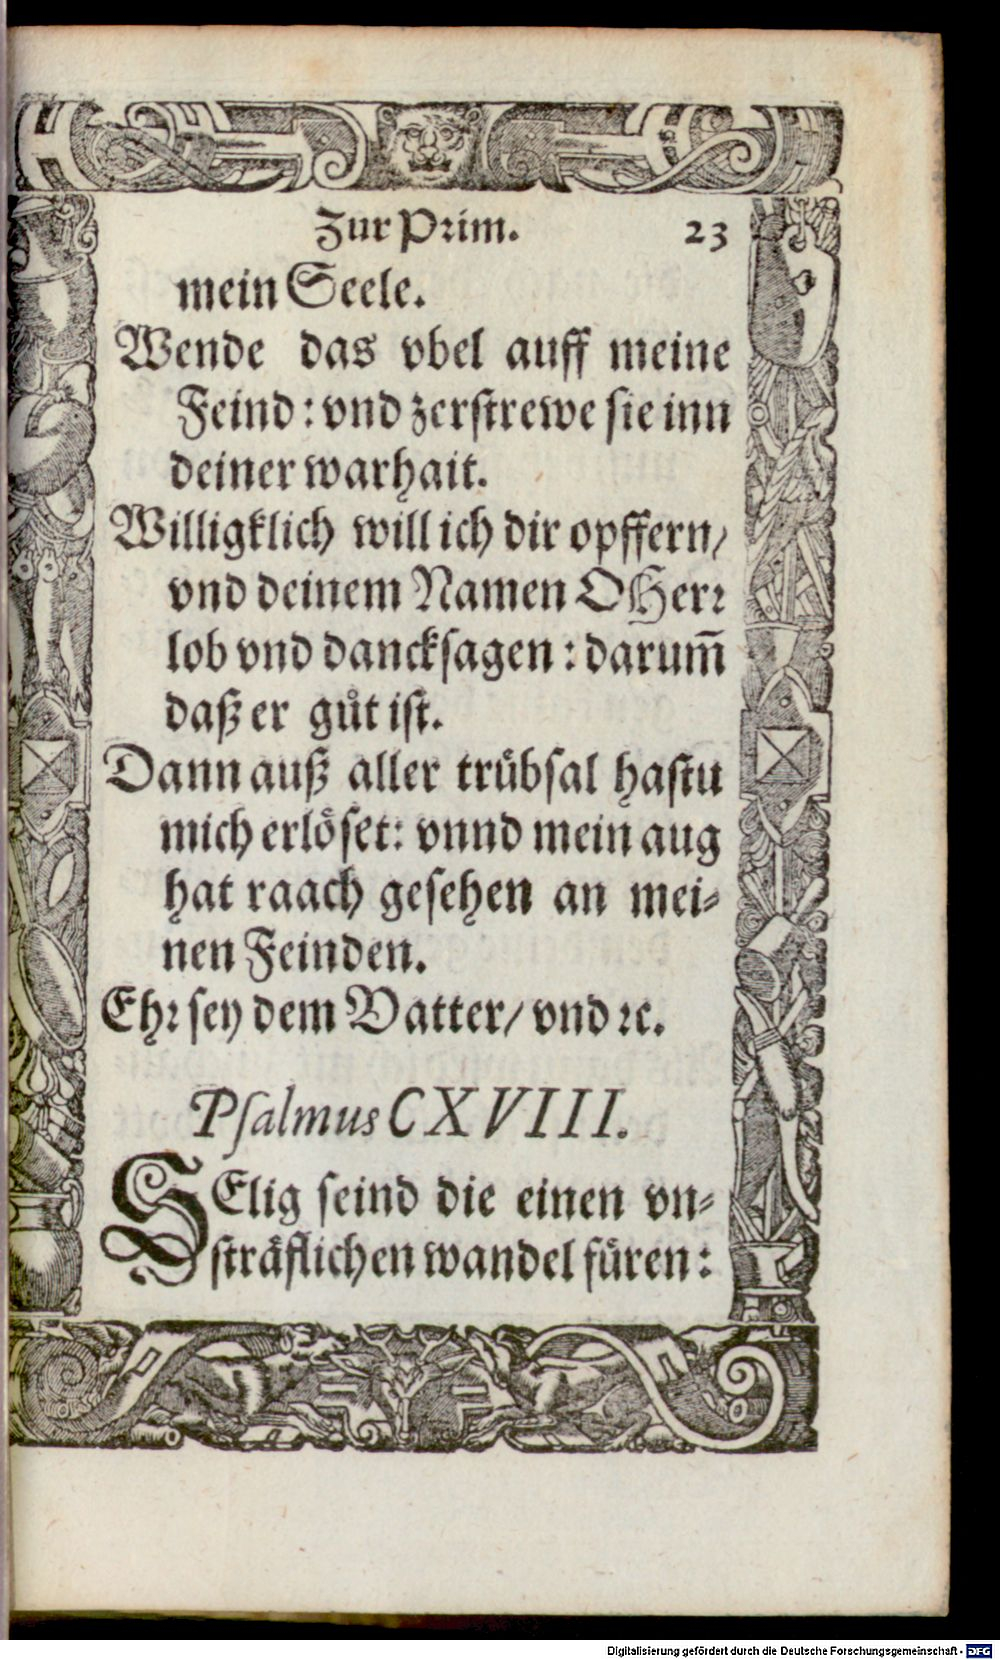 Zur Prim. 23
mein Seele.
Wende das vbel auff meine
Feind: vnd zerstrewe sie inn
deiner warhait.
Willigklich will ich dir opffern/
vnd deinem Namen O Herꝛ
lob vnd dancksagen: darum̃
daß er gůt ist.
Dann auß aller trübsal hastu
mich erlöset: vnnd mein aug
hat raach gesehen an mei⸗
nen Feinden.
Ehꝛ sey dem Vatter/ vnd ꝛc.
Psalmus CXVIII.
SElig seind die einen vn⸗
sträflichen wandel füren:
Digitalisierung gefördert durch die Deutsche Forschungsgemeinschaft - DFG